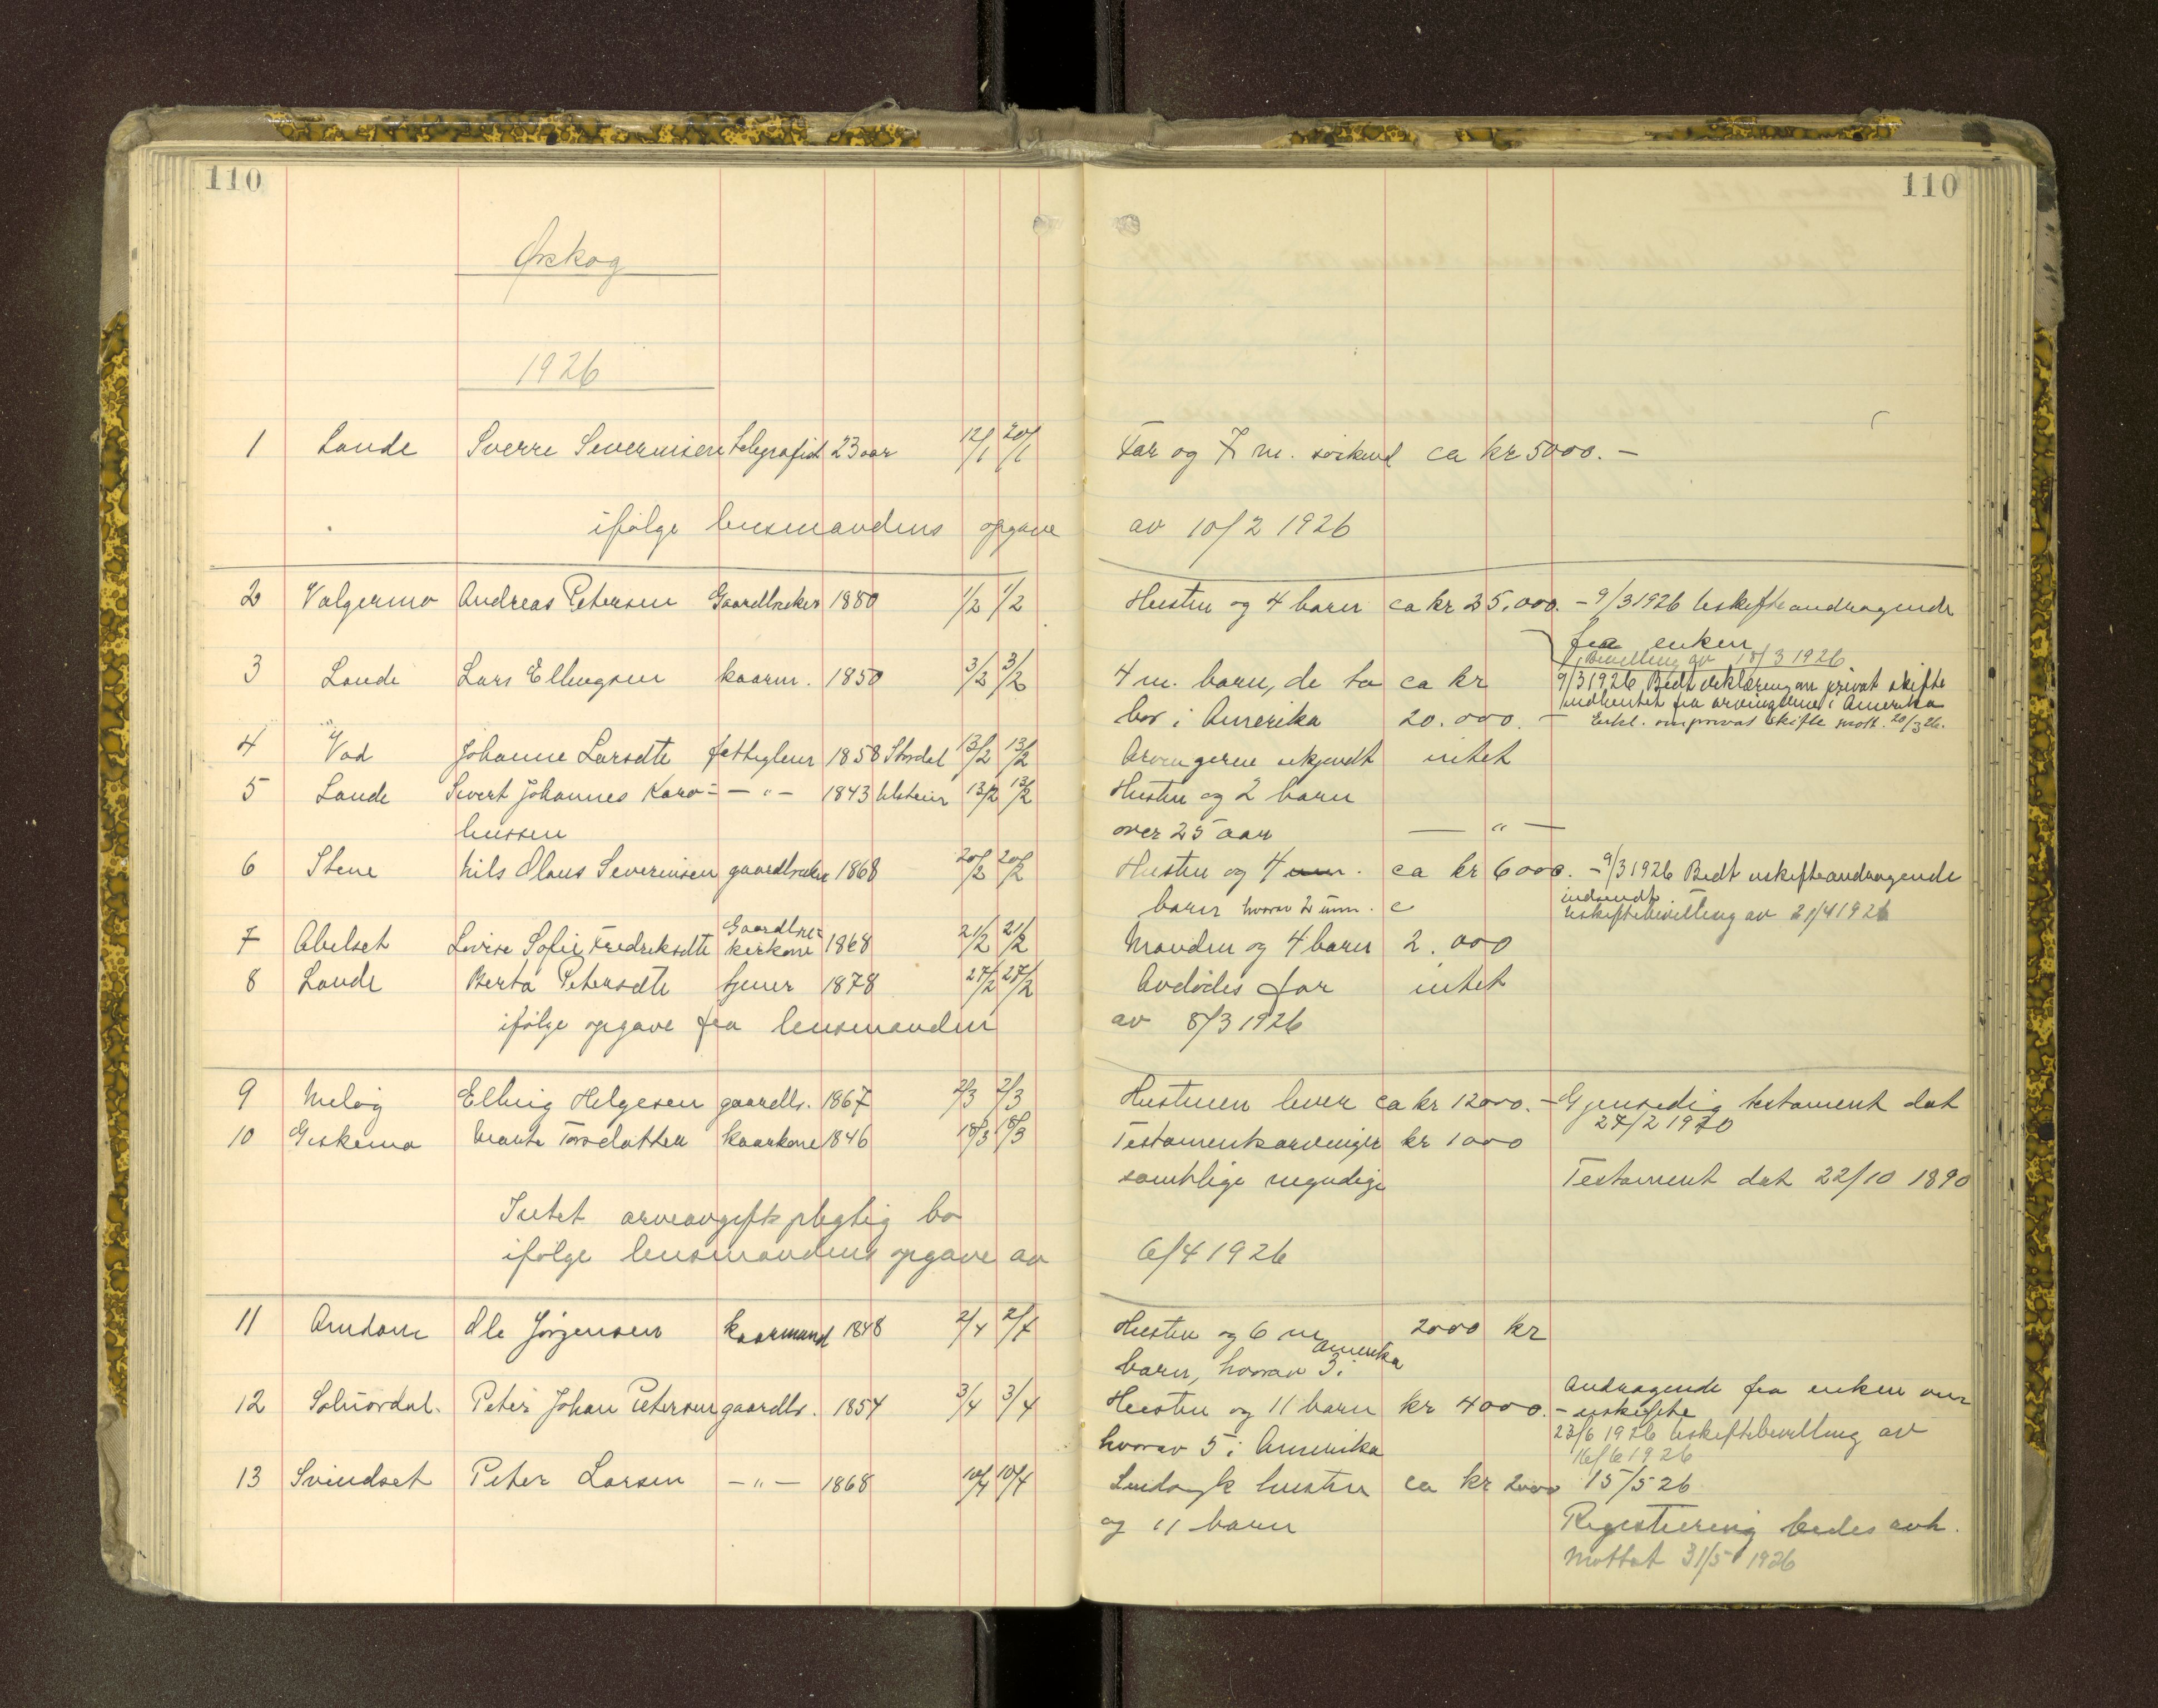 110
110
Ørskog
1926
1 Lande Sverre Severinsen telegrafist 23 aar 12/1 20/1 Far og 7 m. søskend ca kr 5000. -
ifølge lensmandens opgave av 10/2 1926
2 Valgermo Andreas Petersen Gaardbruker 1880 1/2 1/2 Hustru og 4 barn ca kr 25.000. - 9/3 1926 Uskifteandragende
fra enken
Bevilling av 18/3 1926
3 Lande Lars Ellingsen kaarm. 1850 3/2 3/2 4 m. barn, de to ca kr 9/3 1926 Bedt erklæring om privat skifte
indhentet fra arvingerne i Amerika
bor i Amerika 20.000. - Erkl. om privat skifte mott. 20/3 26.
4 Vad Johanne Larsdtr fattiglem 1858 Stordal 13/2 13/2 Arvingerne ukjendt intet
5 Lande Sivert Johannes Karo= - " - 1843 Ulstein 13/2 13/2 Hustru og 2 barn
liussen over 25 aar - " -
6 Stene Nils Olaus Severinsen gaardbruker 1868 20/2 20/2 Hustru og 4 um. ca kr 6000. - 9/3 1926 Bedt uskifteandragende
indsendt
barn hvorav 2 um. Uskiftebevilling av 21/4 1926
7 Abelset Lovise Sofie Fredriksdtr Gaardbru=
kerkone 1868 21/2 21/2 Manden og 4 barn 2.000
8 Lande Berta Petersdtr tjener 1878 27/2 27/2 Avdødes far intet
ifølge opgave fra lensmanden av 8/3 1926
9 Meløy Elling Helgesen gaardbr. 1867 2/3 2/3 Hustruen lever ca kr 12000. - Gjensidig testament dat
27/2 1920
10 Giskemo Marte Torsdatter kaarkone 1846 18/3 18/3 Testamentsarvinger kr 1000
samtlige myndige Testament dat 22/10 1890
Intet arveavgiftspligtig bo
ifølge lensmandens opgave av 6/4 1926
11 Amdam Ole Jørgensen kaarmand 1848 2/4 2/4 Hustru og 6 m 2000 kr
barn, hvorav 3 i Amerika
12 Solnørdal. Peter Johan Petersen gaardbr. 1854 3/4 3/4 Hustru og 11 barn kr 4000. - Andragende fra enken om
uskifte
hvorav 5 i Amerika 23/6 1926 Uskiftebevilling av
16/6 1926
13 Svindset Peter Larsen - " - 1868 10/4 10/4 Sindsyk hustru ca kr 2000 15/5 26
og 11 barn Registrering bedes avh.
Mottat 31/5 1926